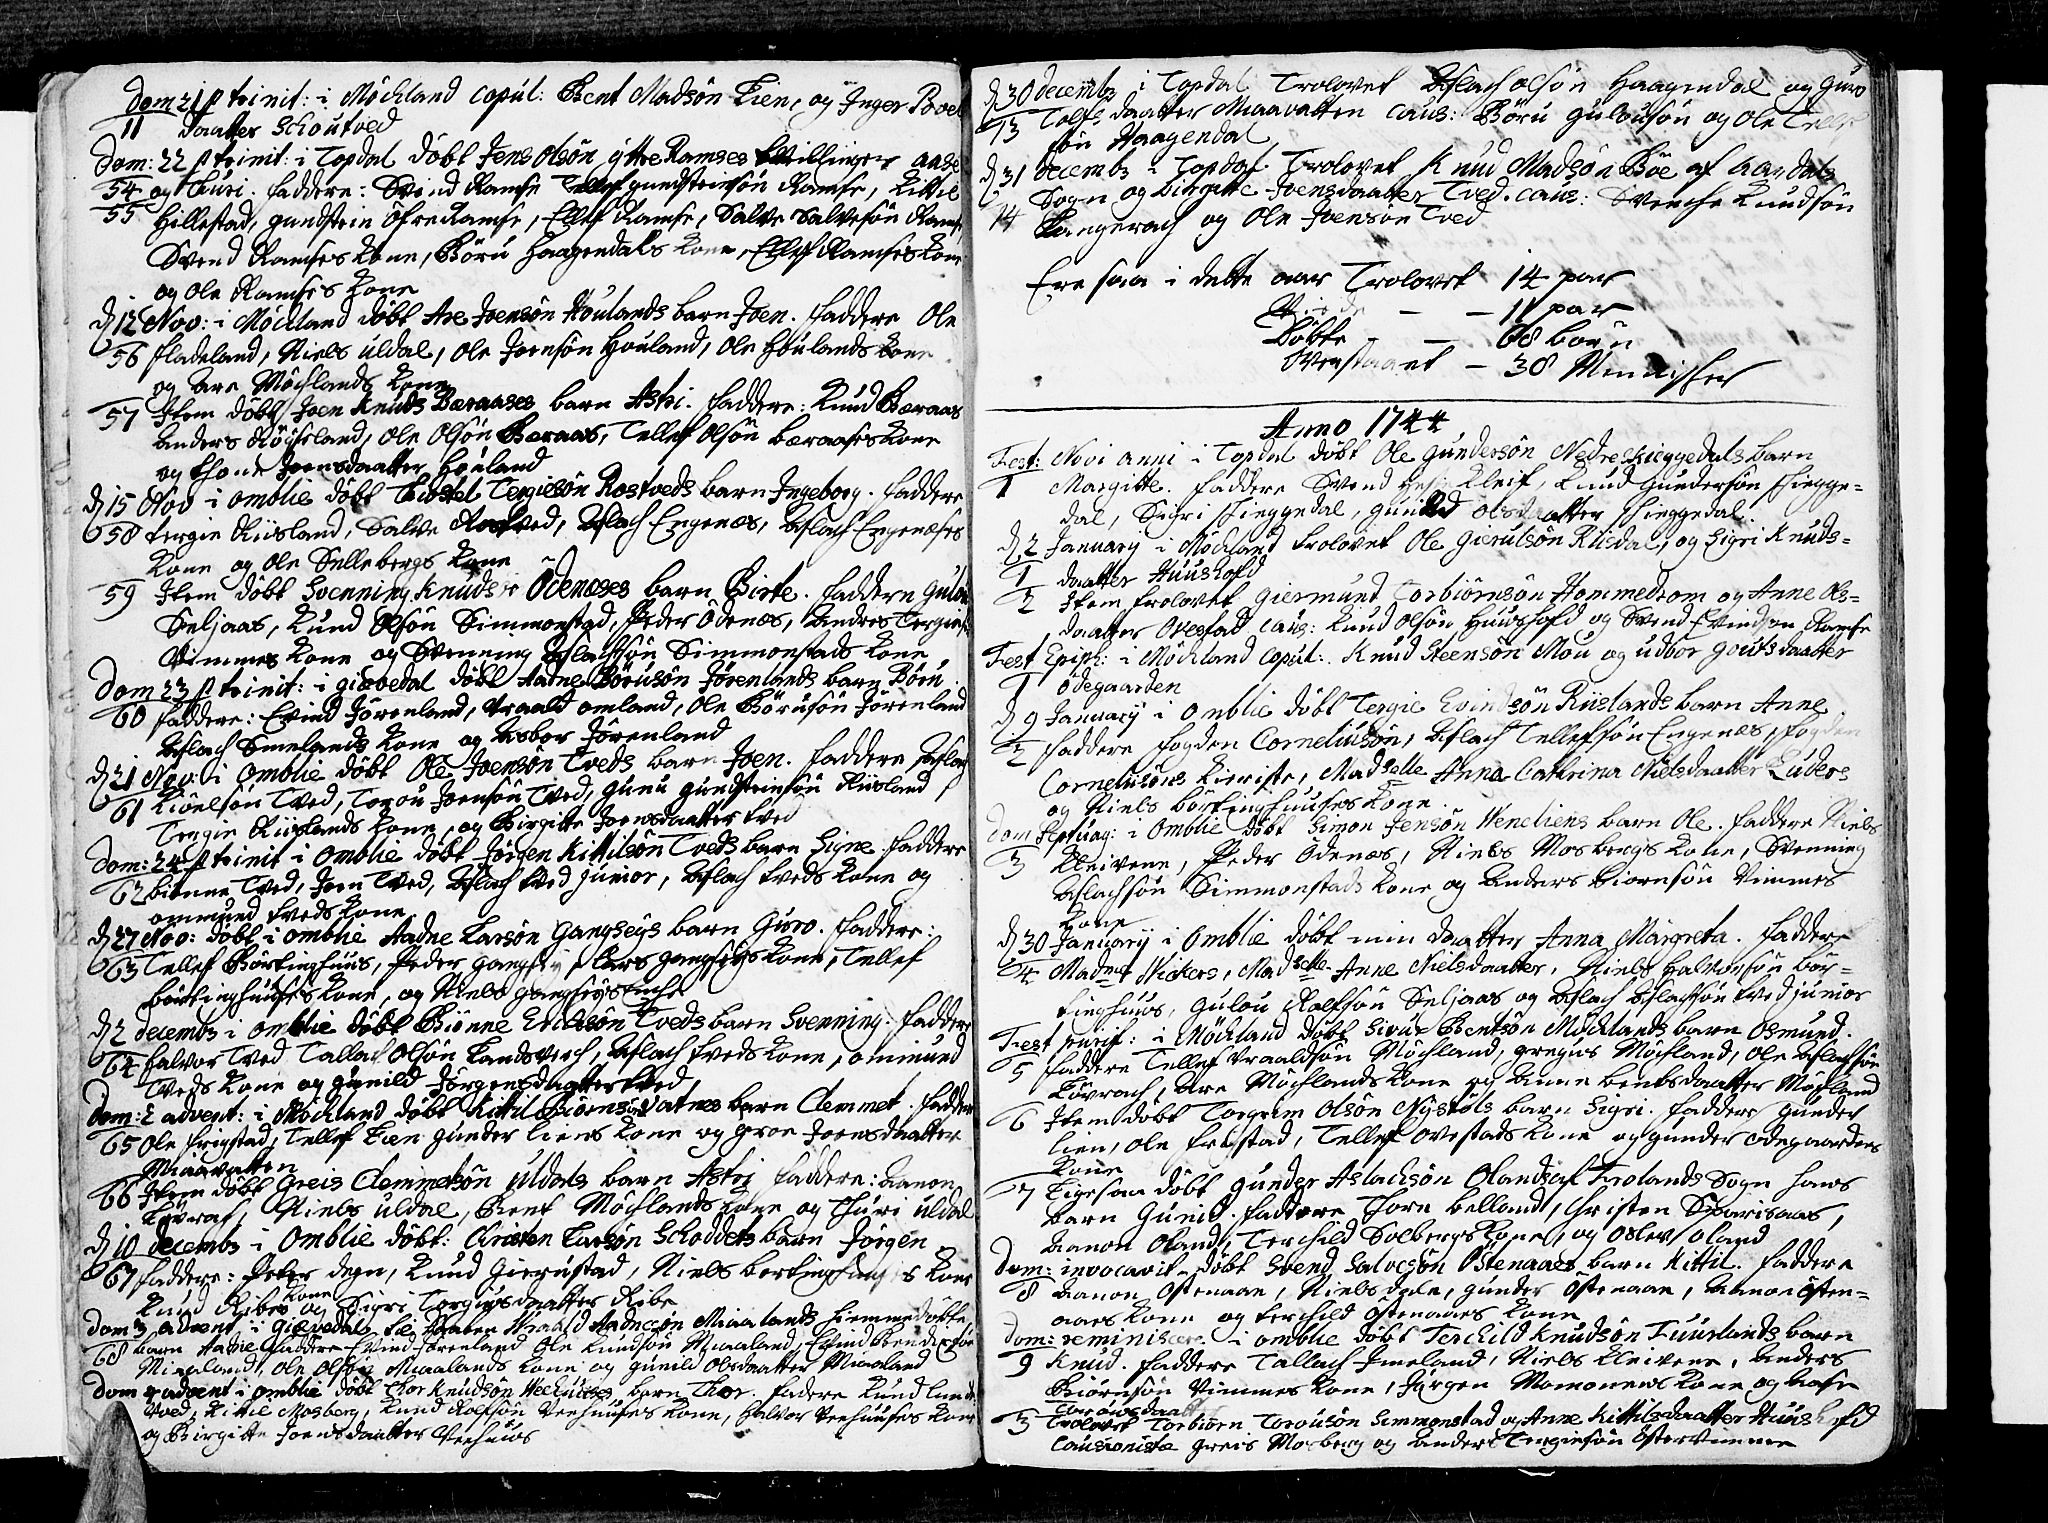 Dom 21 p trinit: i Möckland copul: Bent Madsön Lien, og Inger Povels
11 daatter Schoutved
Dom: 22 p trinit: i Topdal döbt Jens Olsön yttre Ramses tvillinger Aase
54 og Thuri. faddere: Svend Ramse Tellef gundsteinsön Ramse, Kittil
55 Hillestad, gundstein öfre Ramse, Ellef Ramse, Salve Salvesön Ramse,
Svend Ramses Kone, Böru Haagendals Kone, Ellef Ramses Kone
og Ole Ramses Kone
d 12 Nov: i Möckland döbt Are Joensön Houlands barn Joen. faddere Ole
56 fladeland, Niels uldal, Ole Joensön Houland, Ole Houlands Kone
og Are Möcklands Kone
57 Item döbt Joen Knuds Beraases barn Astri. faddere: Knud Beraas
Anders Röyseland, Ole Olsön Beraas, Tellef Olsön Beraases Kone
og Thone Joensdaatter Houland
d 15 Nov i omblie döbt Thostel Tergiesön Rostveds barn Ingeborg. faddere
58 Tergie Riisland, Salve Rostved, Aslach Engenæs, Aslach Engenæses
Kone og Ole Sellebergs Kone
59 Item döbt Svenning Knudsön Ödenæses barn Birte. faddere Gulou
Seljaas, Knud Olsön Simmonstad, Peder Ödenæs, Anders Tergies:
Vimmes Kone og Svenning Aslachsön Simmonstads Kone
Dom 23 p trinit: i giævedal döbt Aadne Börusön Jörenlands barn Böru
60 faddere: Evind Jörenland, Vraald omland, Ole Börusön Jörenland
Aslach Smelands Kone og Asbor Jörenland
d 21 Nov: i omblie döbt Ole Joensön Tveds barn Joen. faddere Aslach
61 Kiöelsön Tved, Torou Joensön Tved, Gunu gundsteinsön Riisland
Tergie Riislands Kone, og Birgitte Joensdaatter tved
Dom: 24 p trinit i omblie döbt Jörgen Kittilsön Tveds barn Signe. faddere
62 biönne Tved, Joen Tved, Aslach tved junior, Aslach tveds Kone og
ommund tveds Kone
d 27 Nov: döbt i omblie Aadne Larsön Gangseys barn Guro. faddere:
63 Tellef Börtinghuus, Peder gangsey, Lars gangseys Kone, Tellef
börtinghuuses Kone, og Niels gangseys enche
d 2 decemb i omblie döbt Biönne Ericksön Tveds barn Svenning. faddere
64 Halvor Tved, Tallach Olsön Landsverch, Aslach tveds Kone, ommund
Tveds Kone og gunild Jörgensdaatter tved
Dom: 2 advent: i Möckland döbt Kittil Biörnsön Vatnes barn Clemmet. fadder
65 Ole frigstad, Tellef Lien gunder liens Kone og groe Joensdaatter
Miaavatten
66 Item döbt Greis Clemmetsön uldals barn Astri faddere: Aanon
Lövras, Niels uldal, Bent Möchlands Kone og Thuri uldal
d 10 decemb i omblie döbt: Christen Larsön Schoddets barn Jörgen
67 faddere: Peter degn, Knud Gierustad, Niels bortinghuuses Kone
Knud Ribes Kone og Sigri Torgiusdaatter Ribe
Dom 3 advent i giævedal Vraald Aadnesön Miaalands hiemmedöbte
68 barn Aadne faddere Evind Jörenland Ole Knudsön Miaaland, Evind
Miaaland, Ole Olsön Miaalands Kone og gunild Olsdaatter Miaaland
Dom 4 advent i omblie döbt Thor Knudsön Veehuses barn Thor. fadere Knud
tved, Kittil Mosberg, Knud Rolfsön Veehuuses Kone, Halvor Veehuuses Kone
og Birgitte Joensdaatter Veehuus
d 30 decemb i Topdal Trolovet Aslach olsön Haagendal og Guro
13 Tolfs daatter Miaavatten Caus: Böru gulousön og Ole Tellef
sön Haagendal
d 31 decemb i Topdal Trolovet Knud Madsön Böe af Aardals
14 Sogn og Birgitte Joensdaatter Tved. caus: Svenche Knudsön
Rangerach og Ole Joensön Tved
Ere saa i dette aar Trolovet 14 par
Viede - - 11 par
Döbte - 68 börn
Versturvet - 38 Mennisker
Anno 1744
Fest: Novi anni i Topdal döbt Ole gundersön Nedreskieggedals barn
1 Margitte. faddere Svend Kleif, Knud Gundersön skiegge=
dal, Sigri skieggedal, gunild olsdaatter skieggedal
d 2 January i Möckland trolovet Ole Gierulsön Riisdal, og Sigri Knuds=
1 daatter Huushofd
2 Item trolovet Giermund Torbiörnsön Hommedrom og Anne Ols=
daatter Ovestad Caus: Knud Olsön Huushofd og Svend Evindsen Ramse
Fest Epiph: i Möckland copul: Knud Steensön Mou og udbor goutsdaatter
1 ödegaarden
d 9 January i omblie döbt Tergie Evindsön Riislands barn Anne
2 faddere fogden Corneliusön, Aslach Tellefsön Engenæs, fogden
Corneliusöns Kieriste, Madselle Anna Cathrina Nielsdaatter Luders
og Niels börtinghuuses Kone.
Dom Septuag: i omblie döbt Simon Jensön Veneliens barn Ole. faddere Niels
3 Kleivene, Peder Ödenæs, Niels Mosbergs Kone, Svenning
Aslachsön Simmonstads Kone og Anders Biornsön Vimmes
Kone
d 30 January i omblie döbt min daatter Anna Margreta. faddere
4 Madme Wickers, Madselle Anne Nielsdaatter, Niels Halvorsön bör=
tinghuus, Gulou Rolfsön Seljaas og Aslach Aslachsön tved junior
Fest purif: i Möckland döbt Sivur Bentsön Möcklands barn Osmund.
5 faddere Tellef Vraaldsön Möchland, gregius Möchland, Ole Aslachsön
Lövrach, Are Möchlands Kone og Anne bentsdaatter Möchland
6 Item döbt Torgrim Olsön Nystöls barn Sigri. faddere Gunder
lien, Ole frigstad, Tellef ovestads Kone og gunder ödegaardens
Kone
7 Ligesaa döbt gunder Aslachsön Olands af Frolands Sogn hans
barn Gunild. faddere Thore belland, Christen Sparisaas,
Aanon Oland, Terchild Solbergs Kone, og Oslev oland
Dom: invocavit. döbt Svend Salvesön Östenaaes barn Kittil. faddere
8 Aanon Östenaae, Niels dale, gunder Östenaae, Aanon östen=
aaes Kone og terchild östenaaes Kone
Dom: reminiscere i omblie döbt Terchild Knudsön Fuurlands barn
9 Knud. faddere Tallach Imeland, Niels Kleivene, Anders
Biörnsön Vimmes Kone, Jörgen Momonews Kone og Aase
Torousdaatter
3 Trolovet Torbiörn Torousön Simmonstad og Anne Kittilsdaatter Huushofd
Cautionister greis Mosberg og Anders Tergiesön östervimme